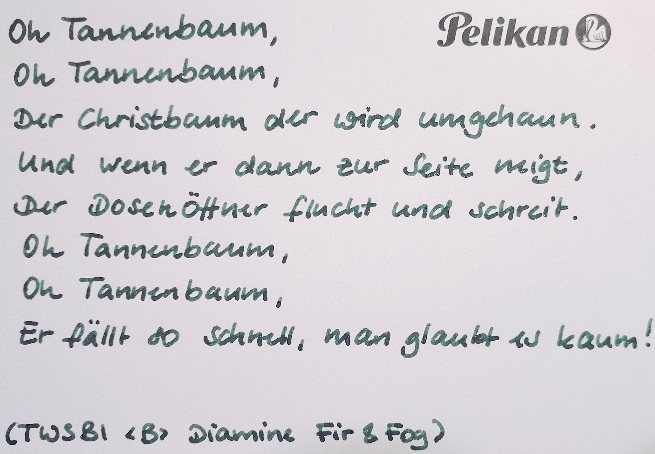 Oh Tannenbaum,
Pelikan
Oh Tannenbaum,
Der Christbaum der wird umgehaun.
Und wenn er dann zur Seite neigt,
Der DosenÖffner flucht und schreit.
Oh Tannenbaum,
Oh Tannenbaum,
Er fällt so schnell, man glaubt es kaum!
(TWSBI <B> Diamine Fir & Fog)